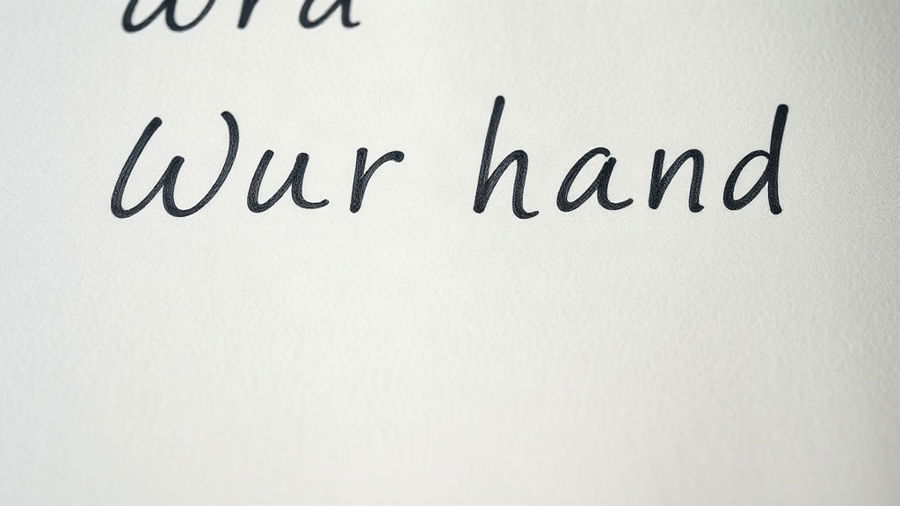 Wur hand